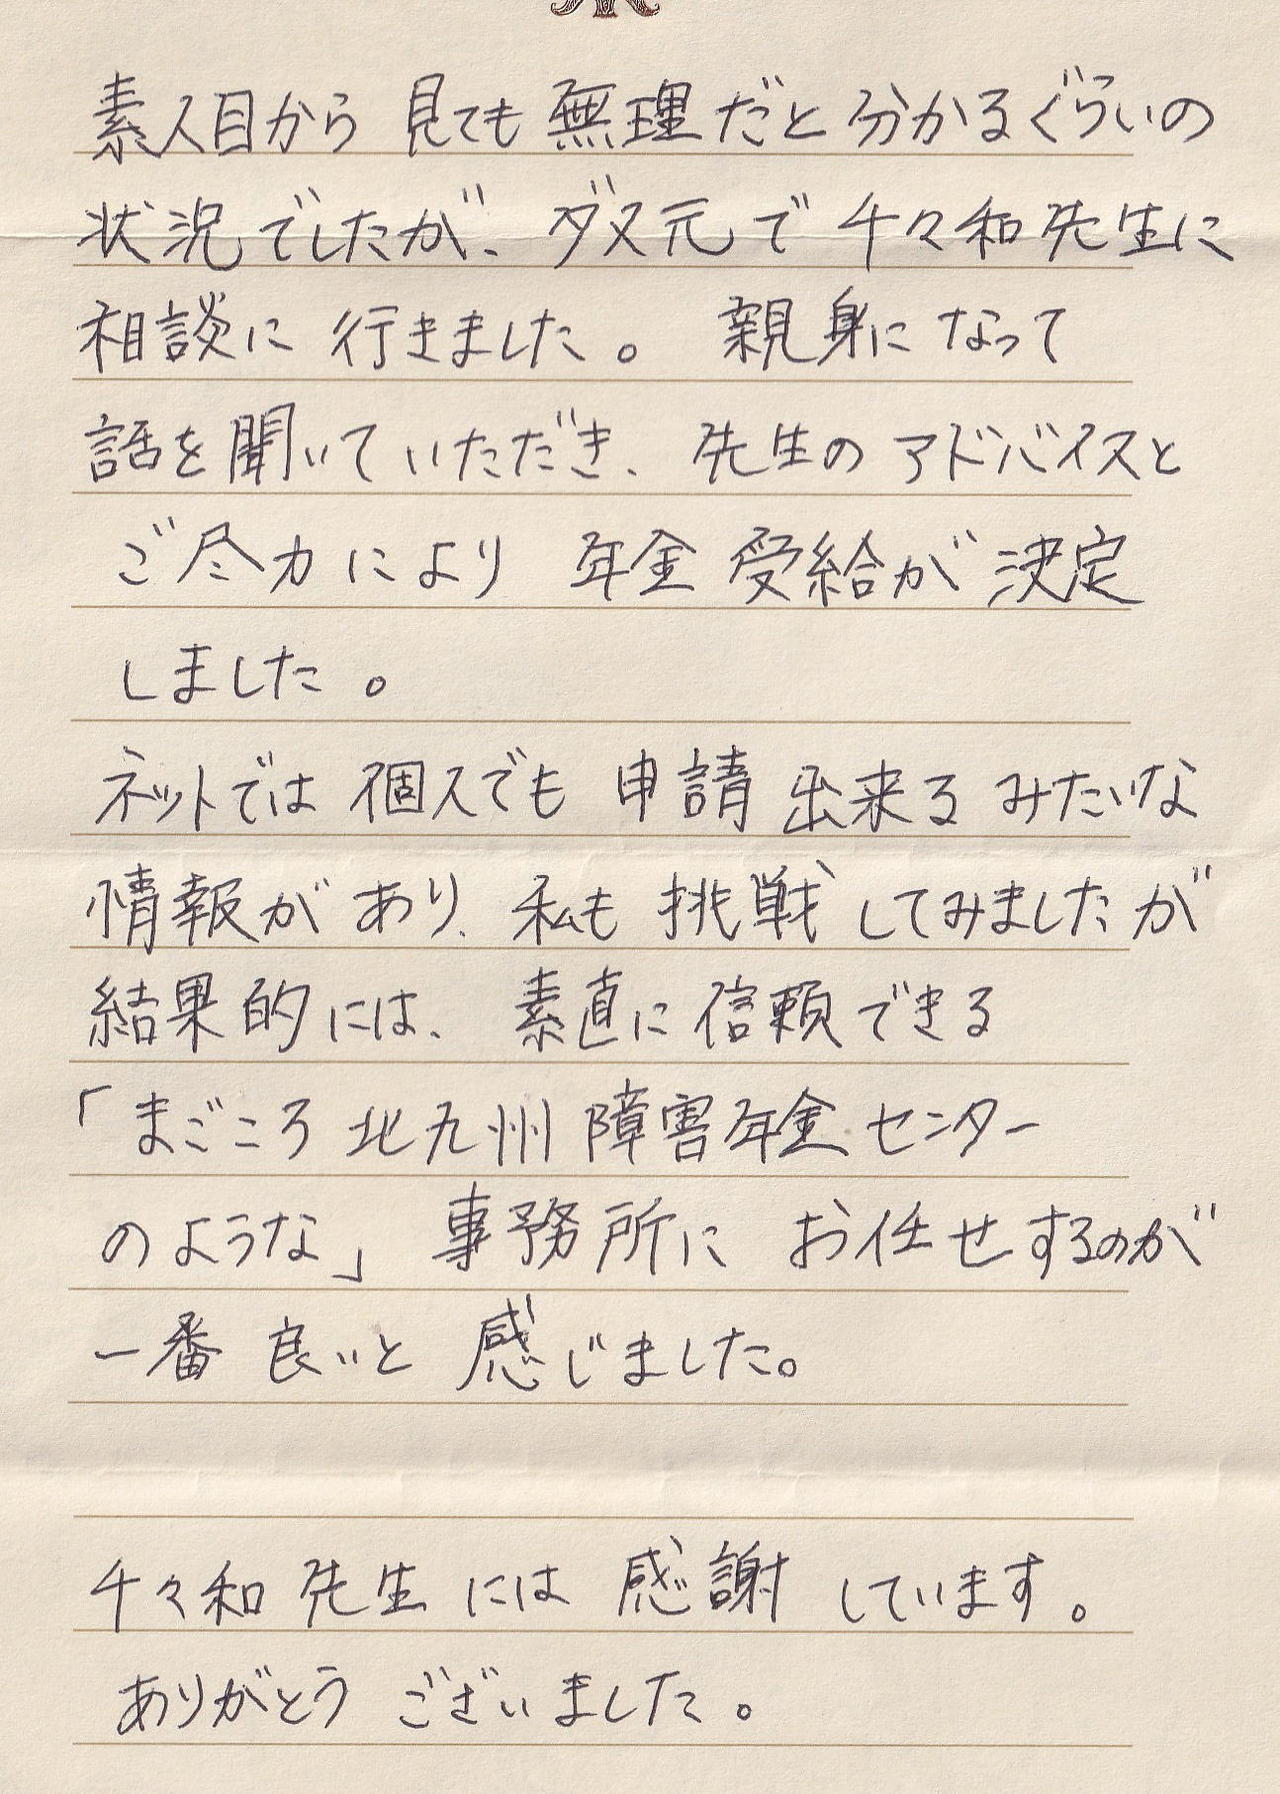 素人目から見ても無理だと分かるぐらいの
状況でしたが、ダメ元で千々和先生に
相談に行きました。親身になって
話を聞いていただき、先生のアドバイスと
ご尽力により年金受給が決定
しました。
ネットでは個人でも申請出来るみたいな
情報があり、私も挑戦してみましたが
結果的には、素直に信頼できる
「まごころ北九州障害年金センター
のような」事務所にお任せするのが
一番良いと感じました。
千々和先生には感謝しています。
ありがとうございました。